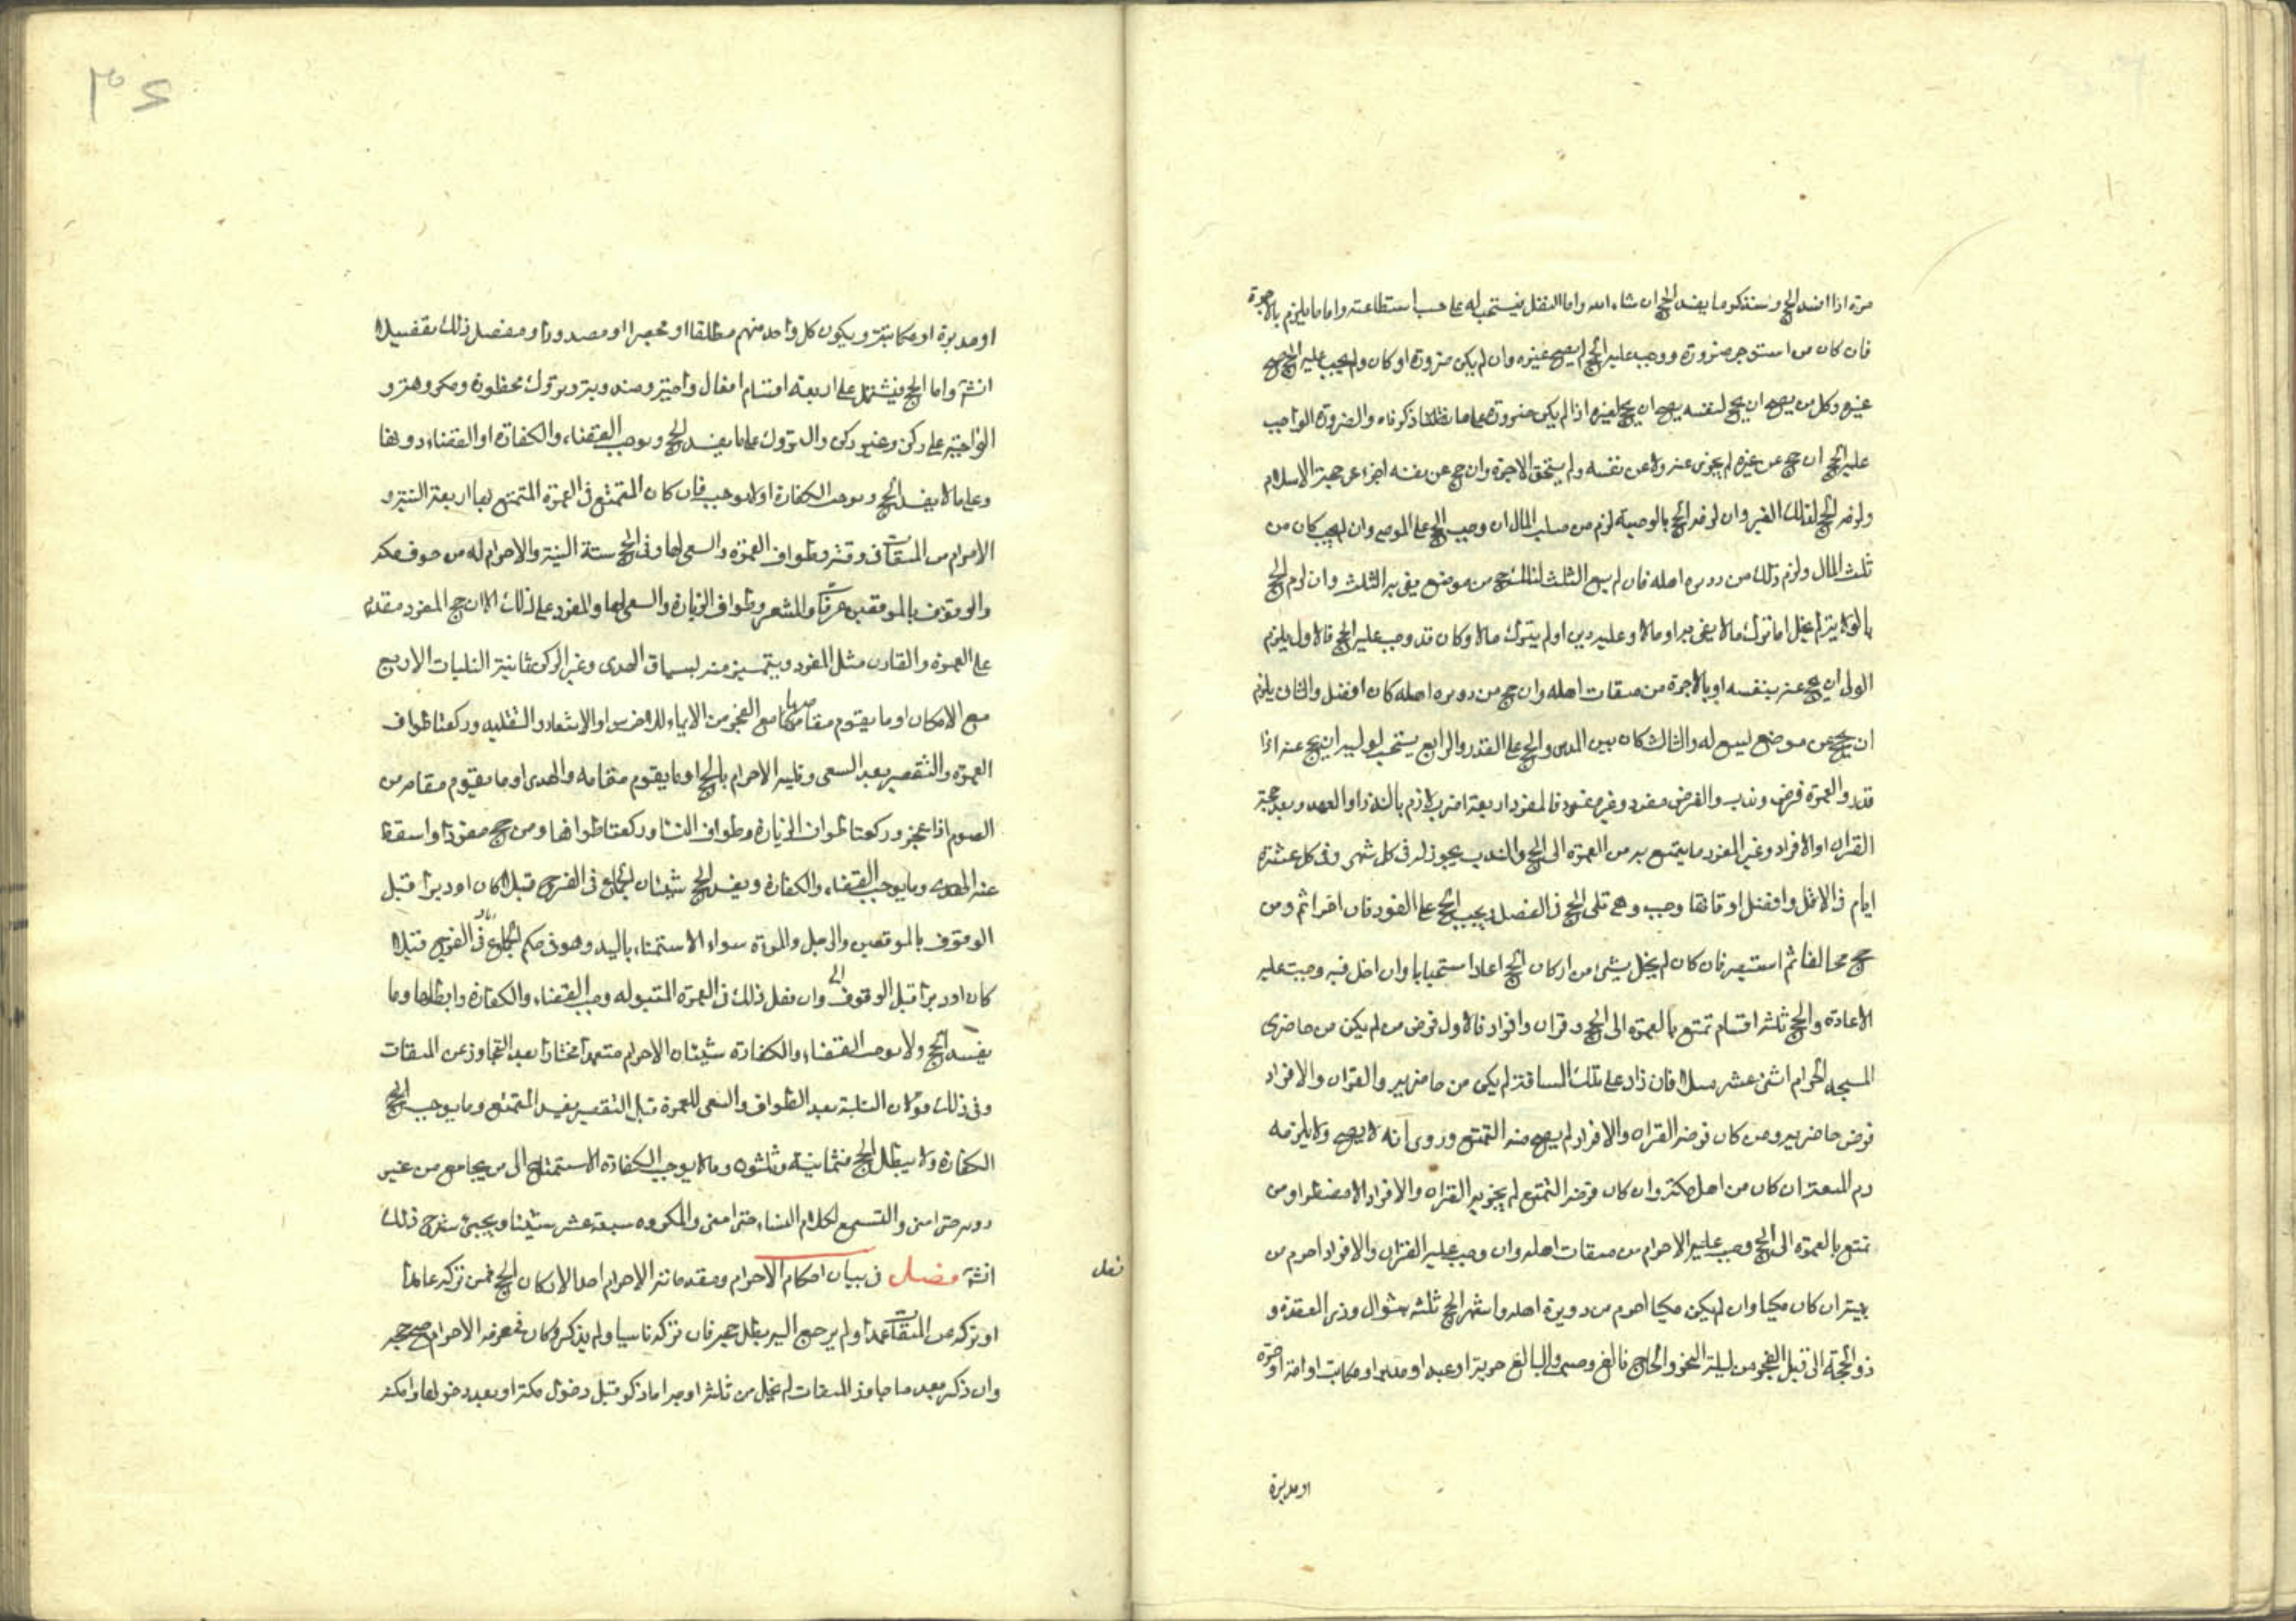 مرة اذا افسد الحج وسنذكر ما يفسد الحج ان شاء الله واما النفل فيستحب له على حسب استطاعته واما ما يلزم بالاجرة
فان كان من استوجر صرورة ووجب عليه الحج لم يصح عن غيره وان لم يكن صرورة او كان ولم يجب عليه الحج صح
عن غيره وكل من يصح ان يحج لنفسه يصح ان يحج لغيره اذا لم يكن صرورة على ما ذكرناه والصرورة الواجب
عليه الحج ان حج عن غيره لم يجز عنه ولا عن نفسه ولم يستحق الاجرة وان حج عن نفسه اجزا عن حجة الاسلام
ولزمه الحج لذلك الغير وان لزمه الحج بالوصية لزم من صلب المال ان وجب الحج على الموصى وان لم يجب كان من
ثلث المال ولزم ذلك من دويرة اهله فان لم يسع الثلث لذلك حج من موضع يفى به الثلث وان لزم الحج
بالولاية لم يخل اما ترك مالا يفى به او مالا وعليه دين او لم يترك مالا وكان قد وجب عليه الحج فالاول يلزم
الولى ان يحج عنه بنفسه او بالاجرة من ميقات اهله وان حج من دويرة اهله كان افضل والثانى يلزم
ان يحج من موضع ليسع له والثالث كان بين الدين والحج على القدر والرابع يستحب لوليه ان يحج عنه اذا
قدر والعمرة فرض وندب والفرض مفرد وغير مفرد فالمفرد اربعة اضرب لازم بالنذر او العهد وبعد حجة
القران او الافراد وغير المفرد ما يتمتع به من العمرة الى الحج والندب يجوز له فى كل شهر وفى كل عشرة
ايام فى الاقل وافضل اوقاتها وجب وهى تلى الحج فى الفضل ويجب الحج على الفور فان اخر اثم ومن
حج مخالفا ثم استبصر فان كان لم يخل بشىء من اركان الحج اعاد استحبابا وان اخل فيه وجبت عليه
الاعادة والحج ثلثة اقسام تمتع بالعمرة الى الحج وقران وافراد فالاول فرض من لم يكن من حاضرى
المسجد الحرام اثنى عشر ميلا فان زاد على تلك المسافة لم يكن من حاضريه والقران والافراد
فرض حاضريه ومن كان فرضه القران والافراد لم يصح منه التمتع وروى انه لا يصح ولا يلزمه
دم المتعة ان كان من اهل مكة وان كان فرضه التمتع لم يجز به القران والافراد الا مضطرا ومن
تمتع بالعمرة الى الحج وجب عليه الاحرام من ميقات اهله وان وجب عليه القران والافراد احرم من
بيته ان كان مكيا وان لم يكن مكيا احرم من دويرة اهله واشهر الحج ثلثة شوال وذى القعدة و
ذو الحجة الى قبل الفجر من ليلة النحر والحاج بالغ وصبى والبالغ حر او عبد او مدبر او مكاتب او امة او حرة
او مدبرة
او مدبرة او مكاتبة ويكون كل واحد منهم مطلقا او محصرا او مصدودا ومفصل ذلك تفصيلا
انشه واما الحج فيشتمل على اربعة اقسام افعال واجبة ومندوبة وتروك محظورة ومكروهة و
الواجبة على ركن وغير ركن والتروك على ما يفسد الحج ويوجب القضاء والكفارة او القضاء دونها
وعلى ما لا يفسد الحج ويوجب الكفارة او لا يوجب فان كان المتمتع فى العمرة المتمتع بها اربعة النية و
الاحرام من الميقات فى وقته وطواف العمرة والسعى لها وفى الحج ستة النية والاحرام له من جوف مكة
والوقوف بالموقفين عرفات والمشعر وطواف الزيارة والسعى لها والمفرد على ذلك الا ان حج المفرد مقدم
على العمرة والقارن مثل المفرد ويتميز منه بسياق الهدى وغير الركن ثمانية التلبيات الاربع
مع الامكان او ما يقوم مقامها مع العجز من الايماء للاخرس او الاشعار والتقليد وركعتا طواف
العمرة والتقصير بعد السعى وتلبية الاحرام بالحج او ما يقوم مقامه والهدى او ما يقوم مقامه من
الصوم اذا عجز وركعتا طواف الزيارة وطواف النساء وركعتا طوافها ومن حج مفردا واسقط
عنه الهدى وما يوجب القضاء والكفارة ويفسد الحج شيئان الجماع فى الفرج قبلا كان او دبرا قبل
الوقوف بالموقفين والرجل والمرءة سواء الاستمناء باليد وهو فى حكم الجماع فى الفرج قبلا
كان او دبرا قبل الوقوف وان فعل ذلك فى العمرة المتبولة وجب القضاء والكفارة وابطلها وما
يفسد الحج ولا يوجب القضاء والكفارة شيئان الاحرام متعمدا مختارا بعد التجاوز عن الميقات
وفى ذلك قولان التلبية بعد الطواف والسعى للعمرة قبل التقصير يفسد المتمتع وما يوجب الحج
الكفارة ولا يبطل الحج فثمانية وثلثون وما لا يوجب الكفارة الاستمتاع الى من يجامع من غير
رويه حتى امنى والتسمع لكلام النساء حتى امنى والمكروه سبعة عشر شيئا ويجيئ شرح ذلك
انشه فصل فى بيان احكام الاحرام ومقدماته الاحرام احد الاركان الحج فمن تركه عامدا
او تركه عن الميقات عمدا ولم يرجع اليه بطل حجه فان تركه ناسيا ولم يذكر وكان فى عزمه الاحرام صح حجه
وان ذكر بعد ما جاوز الميقات لم يخل من ثلثة اوجه اما ذكر قبل دخول مكة او بعد دخولها وامكنه
فصل
۳۶